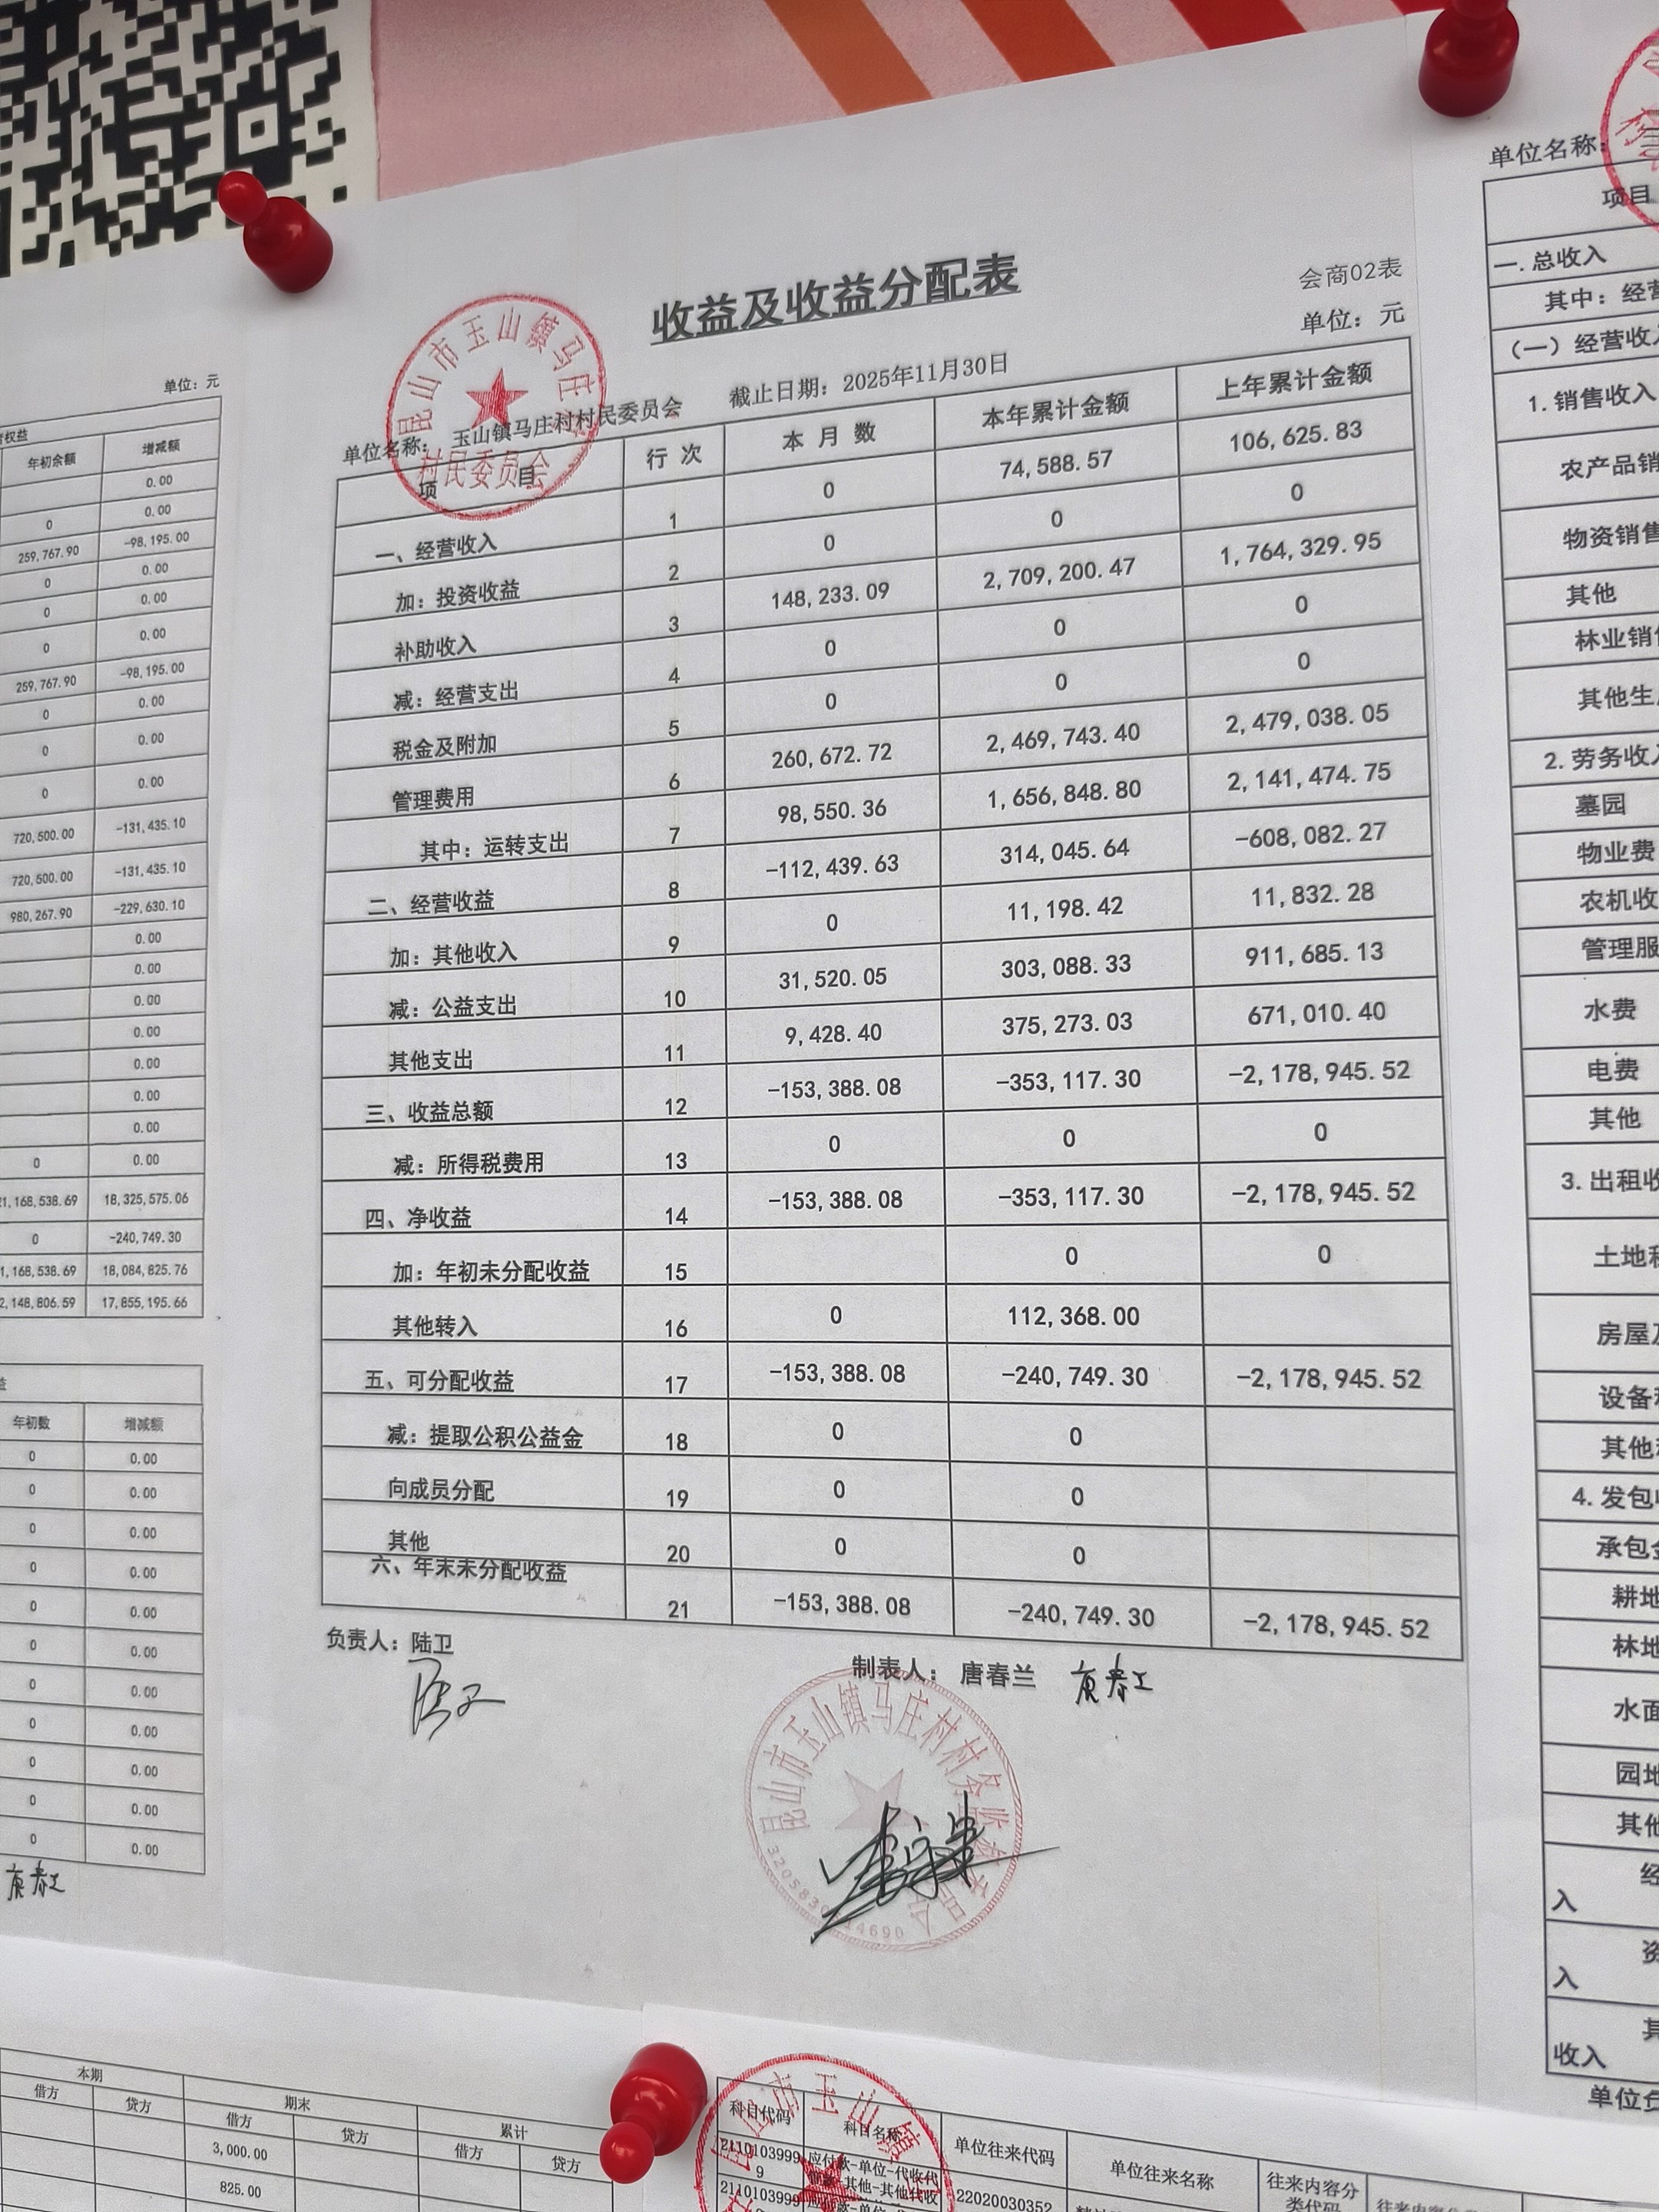 收益及收益分配表
会商02表
单位名称: 玉山镇马庄村村民委员会 截止日期: 2025年11月30日 单位: 元
昆山市玉山镇马庄
村民委员会
项 目 行 次 本 月 数 本年累计金额 上年累计金额
一、经营收入 1 0 74,588.57 106,625.83
加: 投资收益 2 0 0 0
补助收入 3 148,233.09 2,709,200.47 1,764,329.95
减: 经营支出 4 0 0 0
税金及附加 5 0 0 0
管理费用 6 260,672.72 2,469,743.40 2,479,038.05
其中: 运转支出 7 98,550.36 1,656,848.80 2,141,474.75
二、经营收益 8 -112,439.63 314,045.64 -608,082.27
加: 其他收入 9 0 11,198.42 11,832.28
减: 公益支出 10 31,520.05 303,088.33 911,685.13
其他支出 11 9,428.40 375,273.03 671,010.40
三、收益总额 12 -153,388.08 -353,117.30 -2,178,945.52
减: 所得税费用 13 0 0 0
四、净收益 14 -153,388.08 -353,117.30 -2,178,945.52
加: 年初未分配收益 15 0 0
其他转入 16 0 112,368.00
五、可分配收益 17 -153,388.08 -240,749.30 -2,178,945.52
减: 提取公积公益金 18 0 0
向成员分配 19 0 0
其他 20 0 0
六、年末未分配收益 21 -153,388.08 -240,749.30 -2,178,945.52
负责人: 陆卫 制表人: 唐春兰
昆山市玉山镇马庄村村务监
单位: 元
权益
年初余额 增减额
0.00
0 0.00
259,767.90 -98,195.00
0 0.00
0 0.00
0 0.00
259,767.90 -98,195.00
0 0.00
0 0.00
0 0.00
720,500.00 -131,435.10
720,500.00 -131,435.10
980,267.90 -229,630.10
0.00
0.00
0.00
0.00
0.00
0.00
0.00
0 0.00
1,168,538.69 18,325,575.06
0 -240,749.30
1,168,538.69 18,084,825.76
2,148,806.59 17,855,195.66
益
年初数 增减额
0 0.00
0 0.00
0 0.00
0 0.00
0 0.00
0 0.00
0 0.00
0 0.00
0 0.00
0 0.00
0 0.00
单位名称:
项目
一.总收入
其中: 经营
(一) 经营收入
1.销售收入
农产品销
物资销售
其他
林业销售
其他生
2.劳务收入
墓园
物业费
农机收
管理服
水费
电费
其他
3.出租收
土地租
房屋及
设备租
其他租
4.发包收
承包金
耕地
林地
水面
园地
其他
经
入
资
入
其
收入
单位负
本期 期末 累计
借方 贷方 借方 贷方 借方 贷方
3,000.00
825.00
昆山市玉山镇
科目代码 科目名称 单位往来代码 单位往来名称 往来内容分类代码
2110103999
9
应付款-单位-代收代
-其他-其他代收
22020030352
2110103999